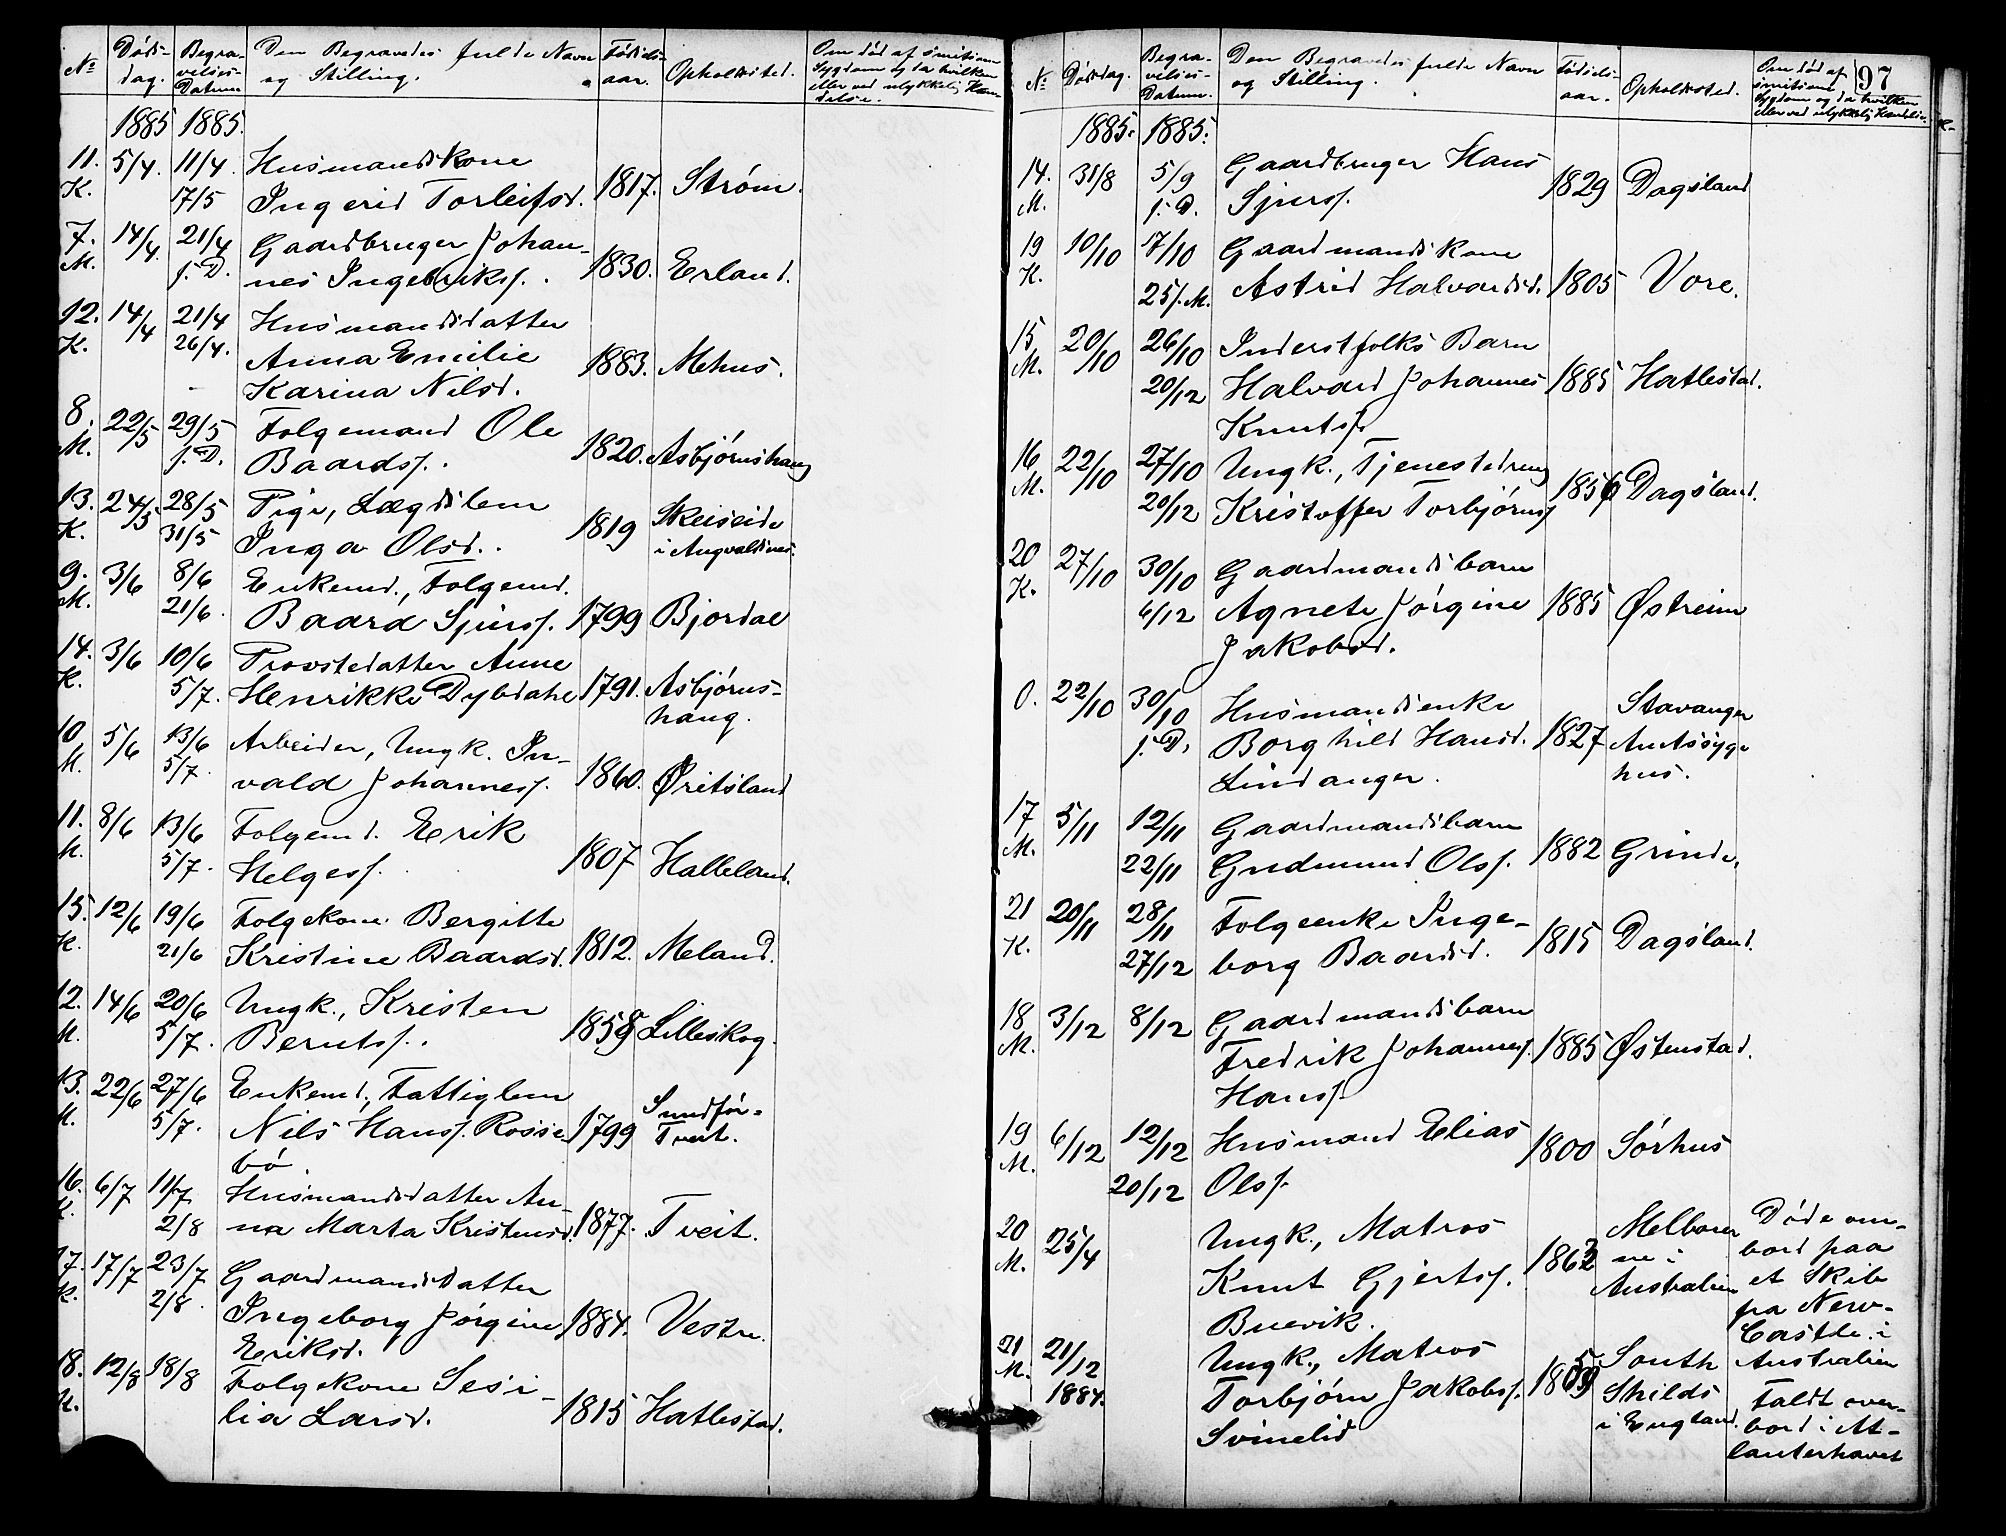 No Døds-dag. Begra-velses-Datum Den Begravedes fulde Navn og Stilling. Fødsels-aar. Opholdssted. Om død af smitsom Sygdom og da hvilken eller ved ulykkelig Hæn-delse.
1885 1885.
11. K. 5/4. 11/4. 17/5 Husmandskone
Ingerid Torleifsd. 1817. Strøm.
7. M. 14/4. 21/4 j. D. Gaardbruger Johan-
nes Ingebriktss. 1830. Erland.
12. K. 14/4 21/4 26/4. Husmandsdatter
Anna Emilie 1883. Mehus.
Karina Nilsd.
8. M. 22/5 29/5 j. D. Folgemand Ole
Baardss. 1820. Asbjørnshaug
13. K. 24/5 28/5 31/5 Pige, Lægdslem
Inga Olsd. 1819 Skeiseide
i Augvaldsnes.
9. M. 3/6 8/6 21/6. Enkemd., Folgemd.
Baard Sjurss. 1799 Bjordal
14. K. 3/6 10/6 5/7. Provstedatter Anne
Henrikke Dybdahl 1791. Asbjørns-
haug.
10 M. 5/6 13/6 5/7. Arbeider, Ungk. In-
vald Johanness. 1860. Øvitsland
11. M. 8/6 13/6 5/7. Folgemd. Erik
Helgess. 1807 Halleland.
15. K. 12/6 19/6 21/6 Folgekone Bergitte
Kristine Baardsd. 1812. Meland.
12. M. 14/6 20/6 5/7. Ungk., Kristen
Berntss. 1858 Lilleskog.
13. M. 22/6 27/6 5/7. Enkemd., Fattiglem
Nils Hanss. Rosse- 1799 Sundfør-
bø. Tveit.
16. K. 6/7 11/7 2/8 Husmandsdatter An-
na Marta Kristensd. 1877. Tveit.
17. K. 17/7 23/7 2/8. Gaardmandsdatter
Ingeborg Jørgine 1884. Vestre.
Eriksd.
18. K. 12/8 18/8 Folgekone Sesi-
lia Larsd. 1815 Hatlestad.
97
No Dødsdag. Begra-velses-Datum. Den Begravedes fulde Navn og Stilling. Fødsels-aar. Opholdssted. Om død af smitsom Sygdom og da hvilken eller ved ulykkelig Hændelse.
1885. 1885.
14. M. 31/8 5/9 j. D. Gaardbruger Hans
Sjurss. 1829 Dagsland
19 K. 10/10 17/10 25/. M. Gaardmandskone
Astrid Halvardsd. 1805 Vore.
15 M. 20/10 26/10 20/12 Inderstfolks Barn
Halvard Johannes 1885 Hatlestad.
Knutss.
16 M. 22/10 27/10 20/12 Ungk., Tjenestedreng
Kristoffer Torbjørnss. 1856 Dagsland.
20 K. 27/10 30/10 6/12 Gaardmandsbarn
Agnete Jørgine 1885 Østreim
Jakobsd.
0. 22/10 30/10 j. D. Husmandsenke
Borghild Hansd. 1827 Stavanger
Lindanger. Amtssyge
hus.
17 M. 5/11 12/11 22/11 Gaardmandsbarn
Gudmund Olss. 1882 Grinde.
21 K. 20/11 28/11 27/12 Folgeenke Inge-
borg Baardsd. 1815 Dagsland.
18 M. 3/12 8/12 Gaardmandsbarn
Fredrik Johannes 1885 Østenstad.
Hanss.
19 M. 6/12 12/12 20/12 Husmand Elias
Olss. 1800 Sørhus
20 M. 25/4 Ungk., Matros
Knut Gjertss. 1862 Melbour
Buevik. ne i
Australien
Døde om-
bord paa
et Skib
fra New-
Castle i
Australien
21 M. 21/12 1884. Ungk., Matros
Torbjørn Jakobss. 1859 South
Svinelid Shilds
i England.
Faldt over-
bord i At-
lanterhavet